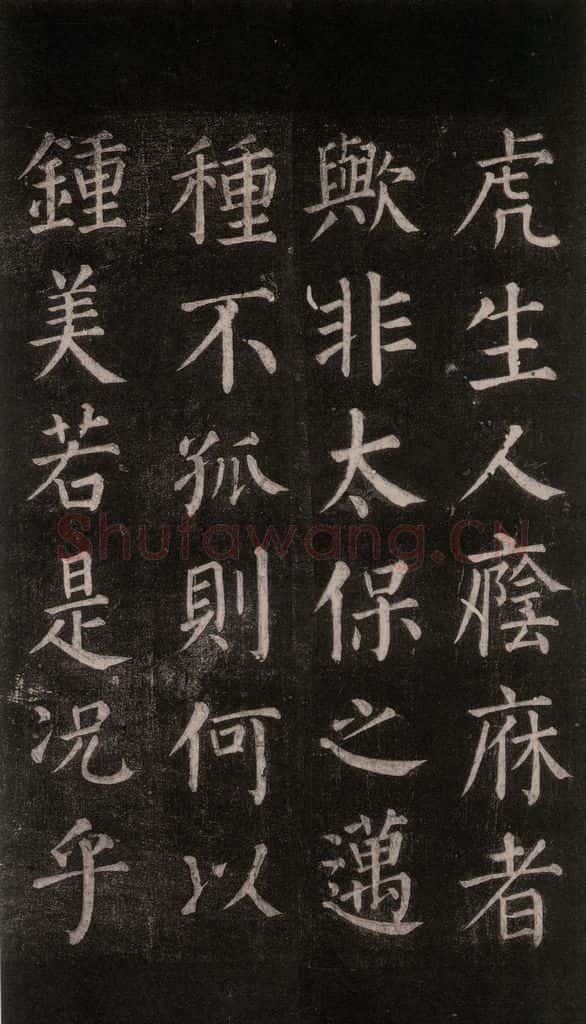 虎生人癊庥者
歟非太保之邁
種不孤則何以
鍾美若是况乎
Shufawang.CN